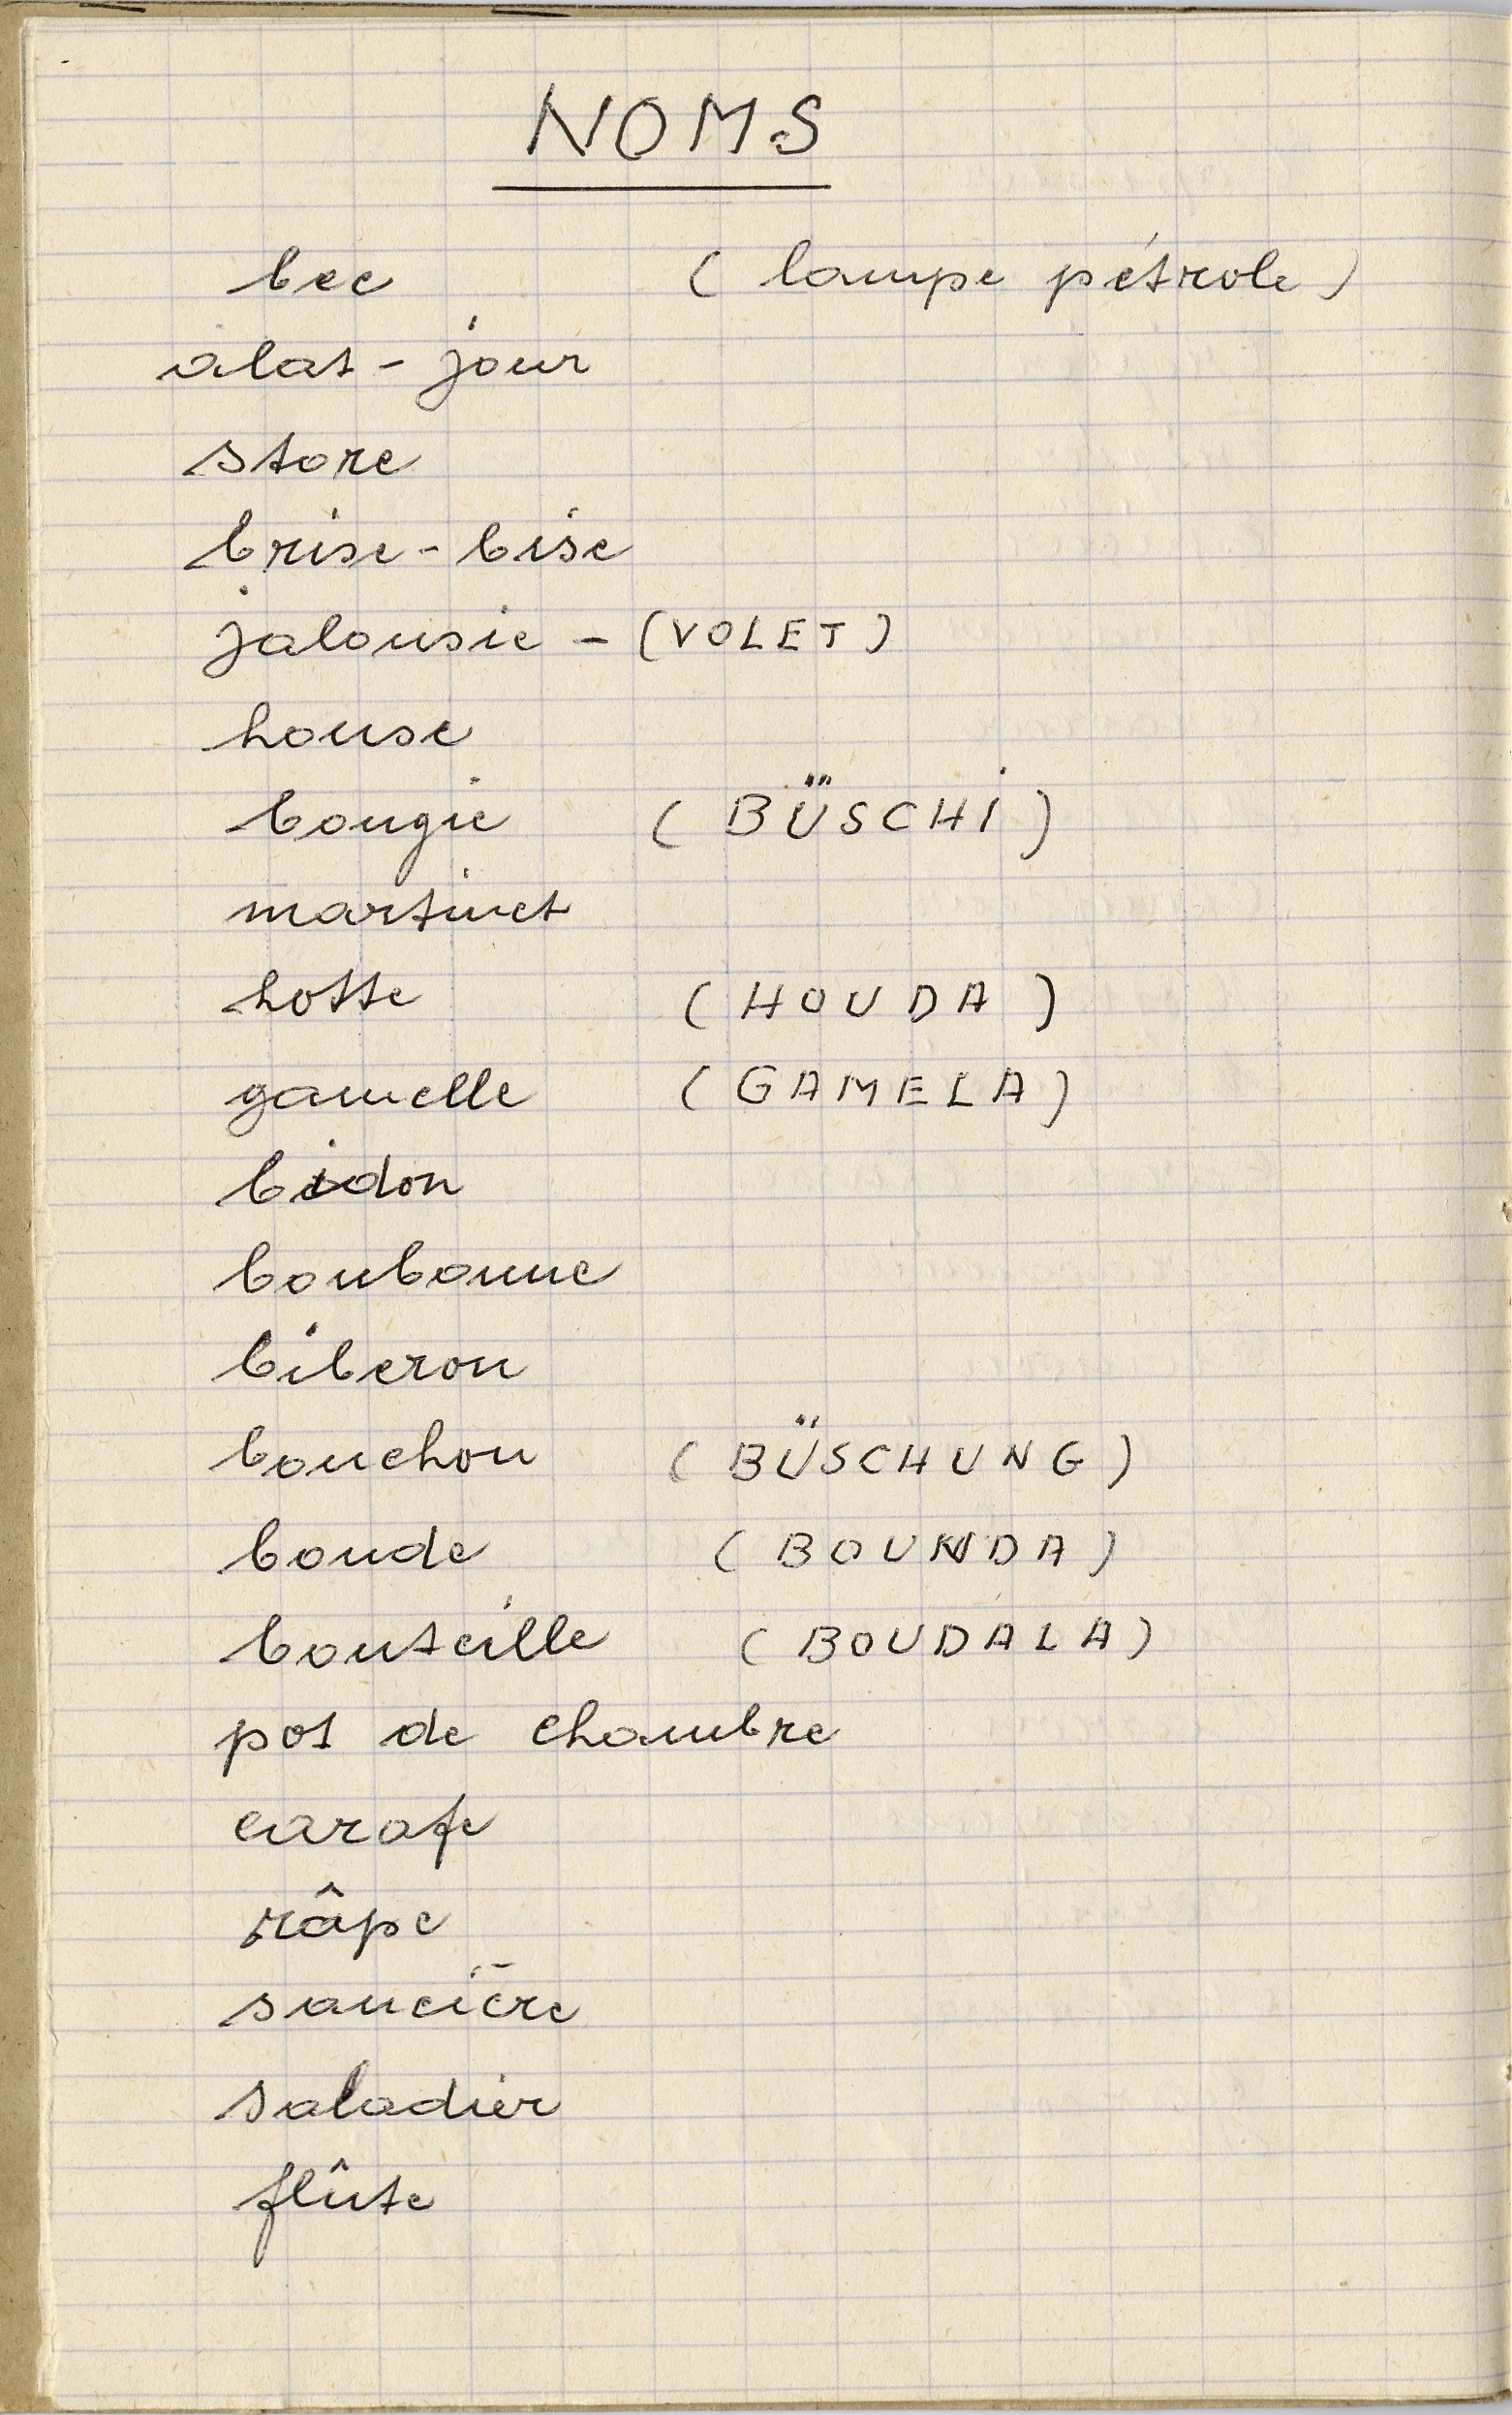 NOMS
bec ( lampe pétrole )
abat-jour
store
brise-bise
jalousie - (VOLET)
house
bougie ( BÜSCHI )
martinet
hotte ( HOUDA )
gamelle ( GAMELA )
bidon
bonbonne
biberon
bouchon ( BÜSCHUNG )
bonde ( BOUNDA )
bouteille ( BOUDALA )
pot de chambre
carafe
râpe
saucière
saladier
flûte